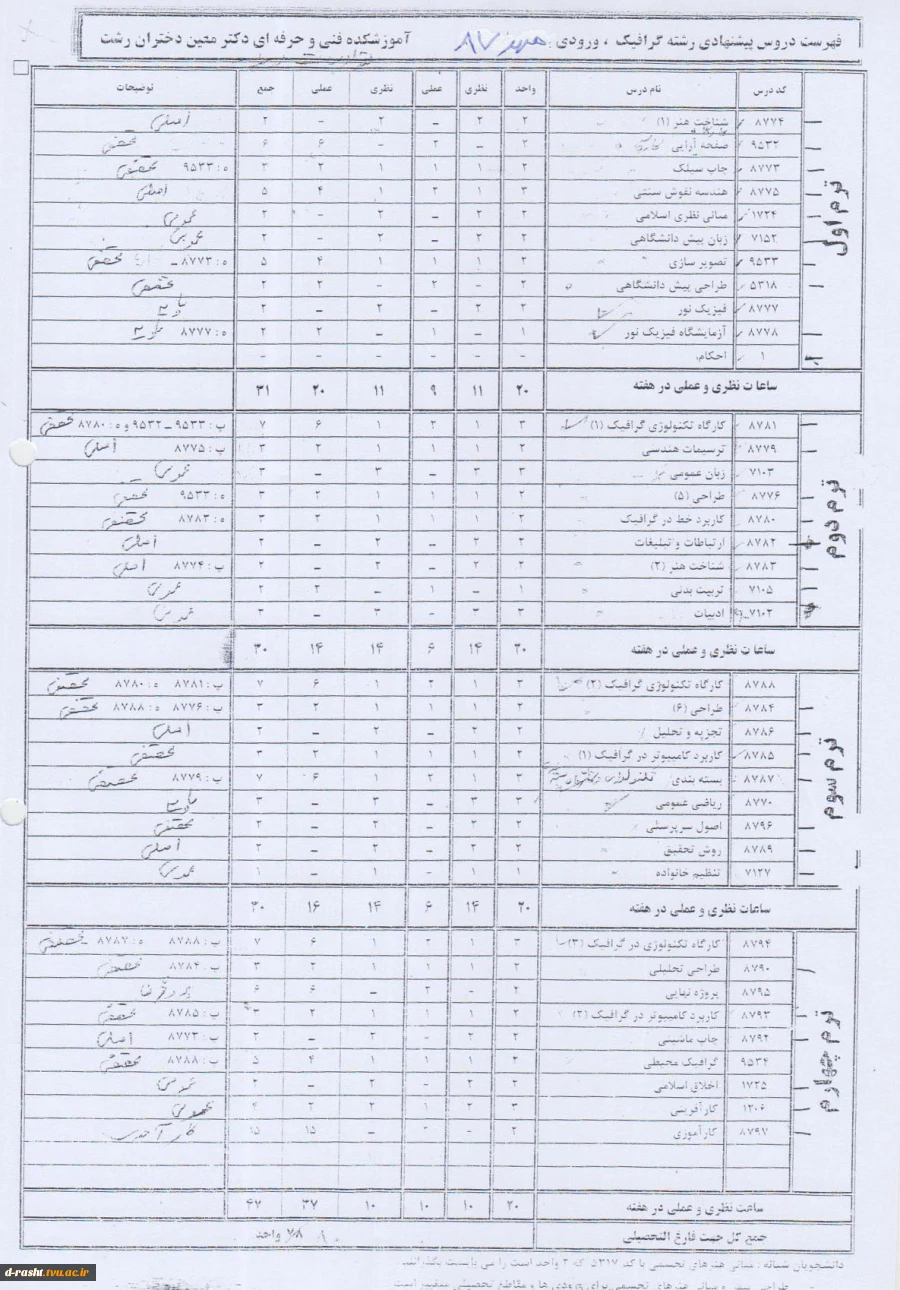 فهرست دروس پیشنهادی رشته گرافیک ، ورودی مهر ۸۷ آموزشکده فنی و حرفه ای دکتر معین دختران رشت
کد درس نام درس واحد نظری عملی نظری عملی جمع توضیحات
ترم اول
۸۷۷۴ شناخت هنر (۱) ۲ ۲ – ۲ – ۲ اصلی
۹۵۳۲ صفحه آرایی ۲ – ۲ – ۶ ۶
۸۷۷۳ چاپ سیلک ۲ ۱ ۱ ۱ ۲ ۳ ه : ۹۵۳۳
۸۷۷۵ هندسه نقوش سنتی ۳ ۱ ۲ ۱ ۴ ۵ اصلی
۱۷۲۴ مبانی نظری اسلامی ۲ ۲ – ۲ – ۲ عمومی
۷۱۵۲ زبان پیش دانشگاهی ۲ ۲ – ۲ – ۲ عمومی
۹۵۳۳ تصویر سازی ۲ ۱ ۱ ۱ ۴ ۵ ه : ۸۷۷۳
۵۳۱۸ طراحی پیش دانشگاهی ۲ – ۲ – ۲ ۲
۸۷۷۷ فیزیک نور ۲ ۲ – ۲ – ۲ پایه
۸۷۷۸ آزمایشگاه فیزیک نور ۱ – ۱ – ۲ ۲ ه : ۸۷۷۷ پایه
۱ احکام – – – – – –
ساعات نظری و عملی در هفته ۲۰ ۱۱ ۹ ۱۱ ۲۰ ۳۱
ترم دوم
۸۷۸۱ کارگاه تکنولوژی گرافیک (۱) ۳ ۱ ۲ ۱ ۶ ۷ پ : ۹۵۳۳ – ۹۵۳۲ و ه : ۸۷۸۰
۸۷۷۹ ترسیمات هندسی ۲ ۱ ۱ ۱ ۲ ۳ پ : ۸۷۷۵ اصلی
۷۱۰۳ زبان عمومی ۳ ۳ – ۳ – ۳ عمومی
۸۷۷۶ طراحی (۵) ۲ ۱ ۱ ۱ ۲ ۳ ه : ۹۵۳۳
۸۷۸۰ کاربرد خط در گرافیک ۲ ۱ ۱ ۱ ۲ ۳ ه : ۸۷۸۳
۸۷۸۲ ارتباطات و تبلیغات ۲ ۲ – ۲ – ۲ اصلی
۸۷۸۳ شناخت هنر (۲) ۲ ۲ – ۲ – ۲ پ : ۸۷۷۴ اصلی
۷۱۰۵ تربیت بدنی ۱ – ۱ – ۲ ۲ عمومی
۷۱۰۲ ادبیات ۳ ۳ – ۳ – ۳ عمومی
ساعات نظری و عملی در هفته ۲۰ ۱۴ ۶ ۱۴ ۱۴ ۳۰
ترم سوم
۸۷۸۸ کارگاه تکنولوژی گرافیک (۲) ۳ ۱ ۲ ۱ ۶ ۷ پ : ۸۷۸۱ ه : ۸۷۸۰
۸۷۸۴ طراحی (۶) ۲ ۱ ۱ ۱ ۲ ۳ پ : ۸۷۷۶ ه : ۸۷۸۸
۸۷۸۶ تجزیه و تحلیل ۲ ۲ – ۲ – ۲ اصلی
۸۷۸۵ کاربرد کامپیوتر در گرافیک (۱) ۲ ۱ ۱ ۱ ۲ ۳
۸۷۸۷ بسته بندی ۳ ۱ ۲ ۱ ۶ ۷ پ : ۸۷۷۹
۸۷۷۰ ریاضی عمومی ۳ ۳ – ۳ – ۳ پایه
۸۷۹۶ اصول سرپرستی ۲ ۲ – ۲ – ۲
۸۷۸۹ روش تحقیق ۲ ۲ – ۲ – ۲ اصلی
۷۱۲۷ تنظیم خانواده ۱ ۱ – ۱ – ۱ عمومی
ساعات نظری و عملی در هفته ۲۰ ۱۴ ۶ ۱۴ ۱۶ ۳۰
ترم چهارم
۸۷۹۴ کارگاه تکنولوژی در گرافیک (۳) ۳ ۱ ۲ ۱ ۶ ۷ پ : ۸۷۸۸ ه : ۸۷۸۷
۸۷۹۰ طراحی تحلیلی ۲ ۱ ۱ ۱ ۲ ۳ پ : ۸۷۸۴
۸۷۹۵ پروژه نهایی ۲ – ۲ – ۶ ۶
۸۷۹۳ کاربرد کامپیوتر در گرافیک (۲) ۲ ۱ ۱ ۱ ۲ ۳ پ : ۸۷۸۵
۸۷۹۲ چاپ ماشینی ۲ ۲ – ۲ – ۲ پ : ۸۷۷۳ اصلی
۹۵۳۴ گرافیک محیطی ۲ ۱ ۱ ۱ ۴ ۵ پ : ۸۷۸۸
۱۷۲۵ اخلاق اسلامی ۲ ۲ – ۲ – ۲ عمومی
۱۲۰۶ کارآفرینی ۳ ۲ ۱ ۲ ۲ ۴ عمومی
۸۷۹۷ کارآموزی ۲ – ۲ – ۱۵ ۱۵
ساعت نظری و عملی در هفته ۲۰ ۱۰ ۱۰ ۱۰ ۳۷ ۴۷
جمع کل جهت فارغ التحصیلی ۷۸ واحد
دانشجویان شبانه : مبانی هنرهای تجسمی با کد ۵۳۱۷ که ۲ واحد است را می بایست بگذرانند
d-rasht.tvu.ac.ir